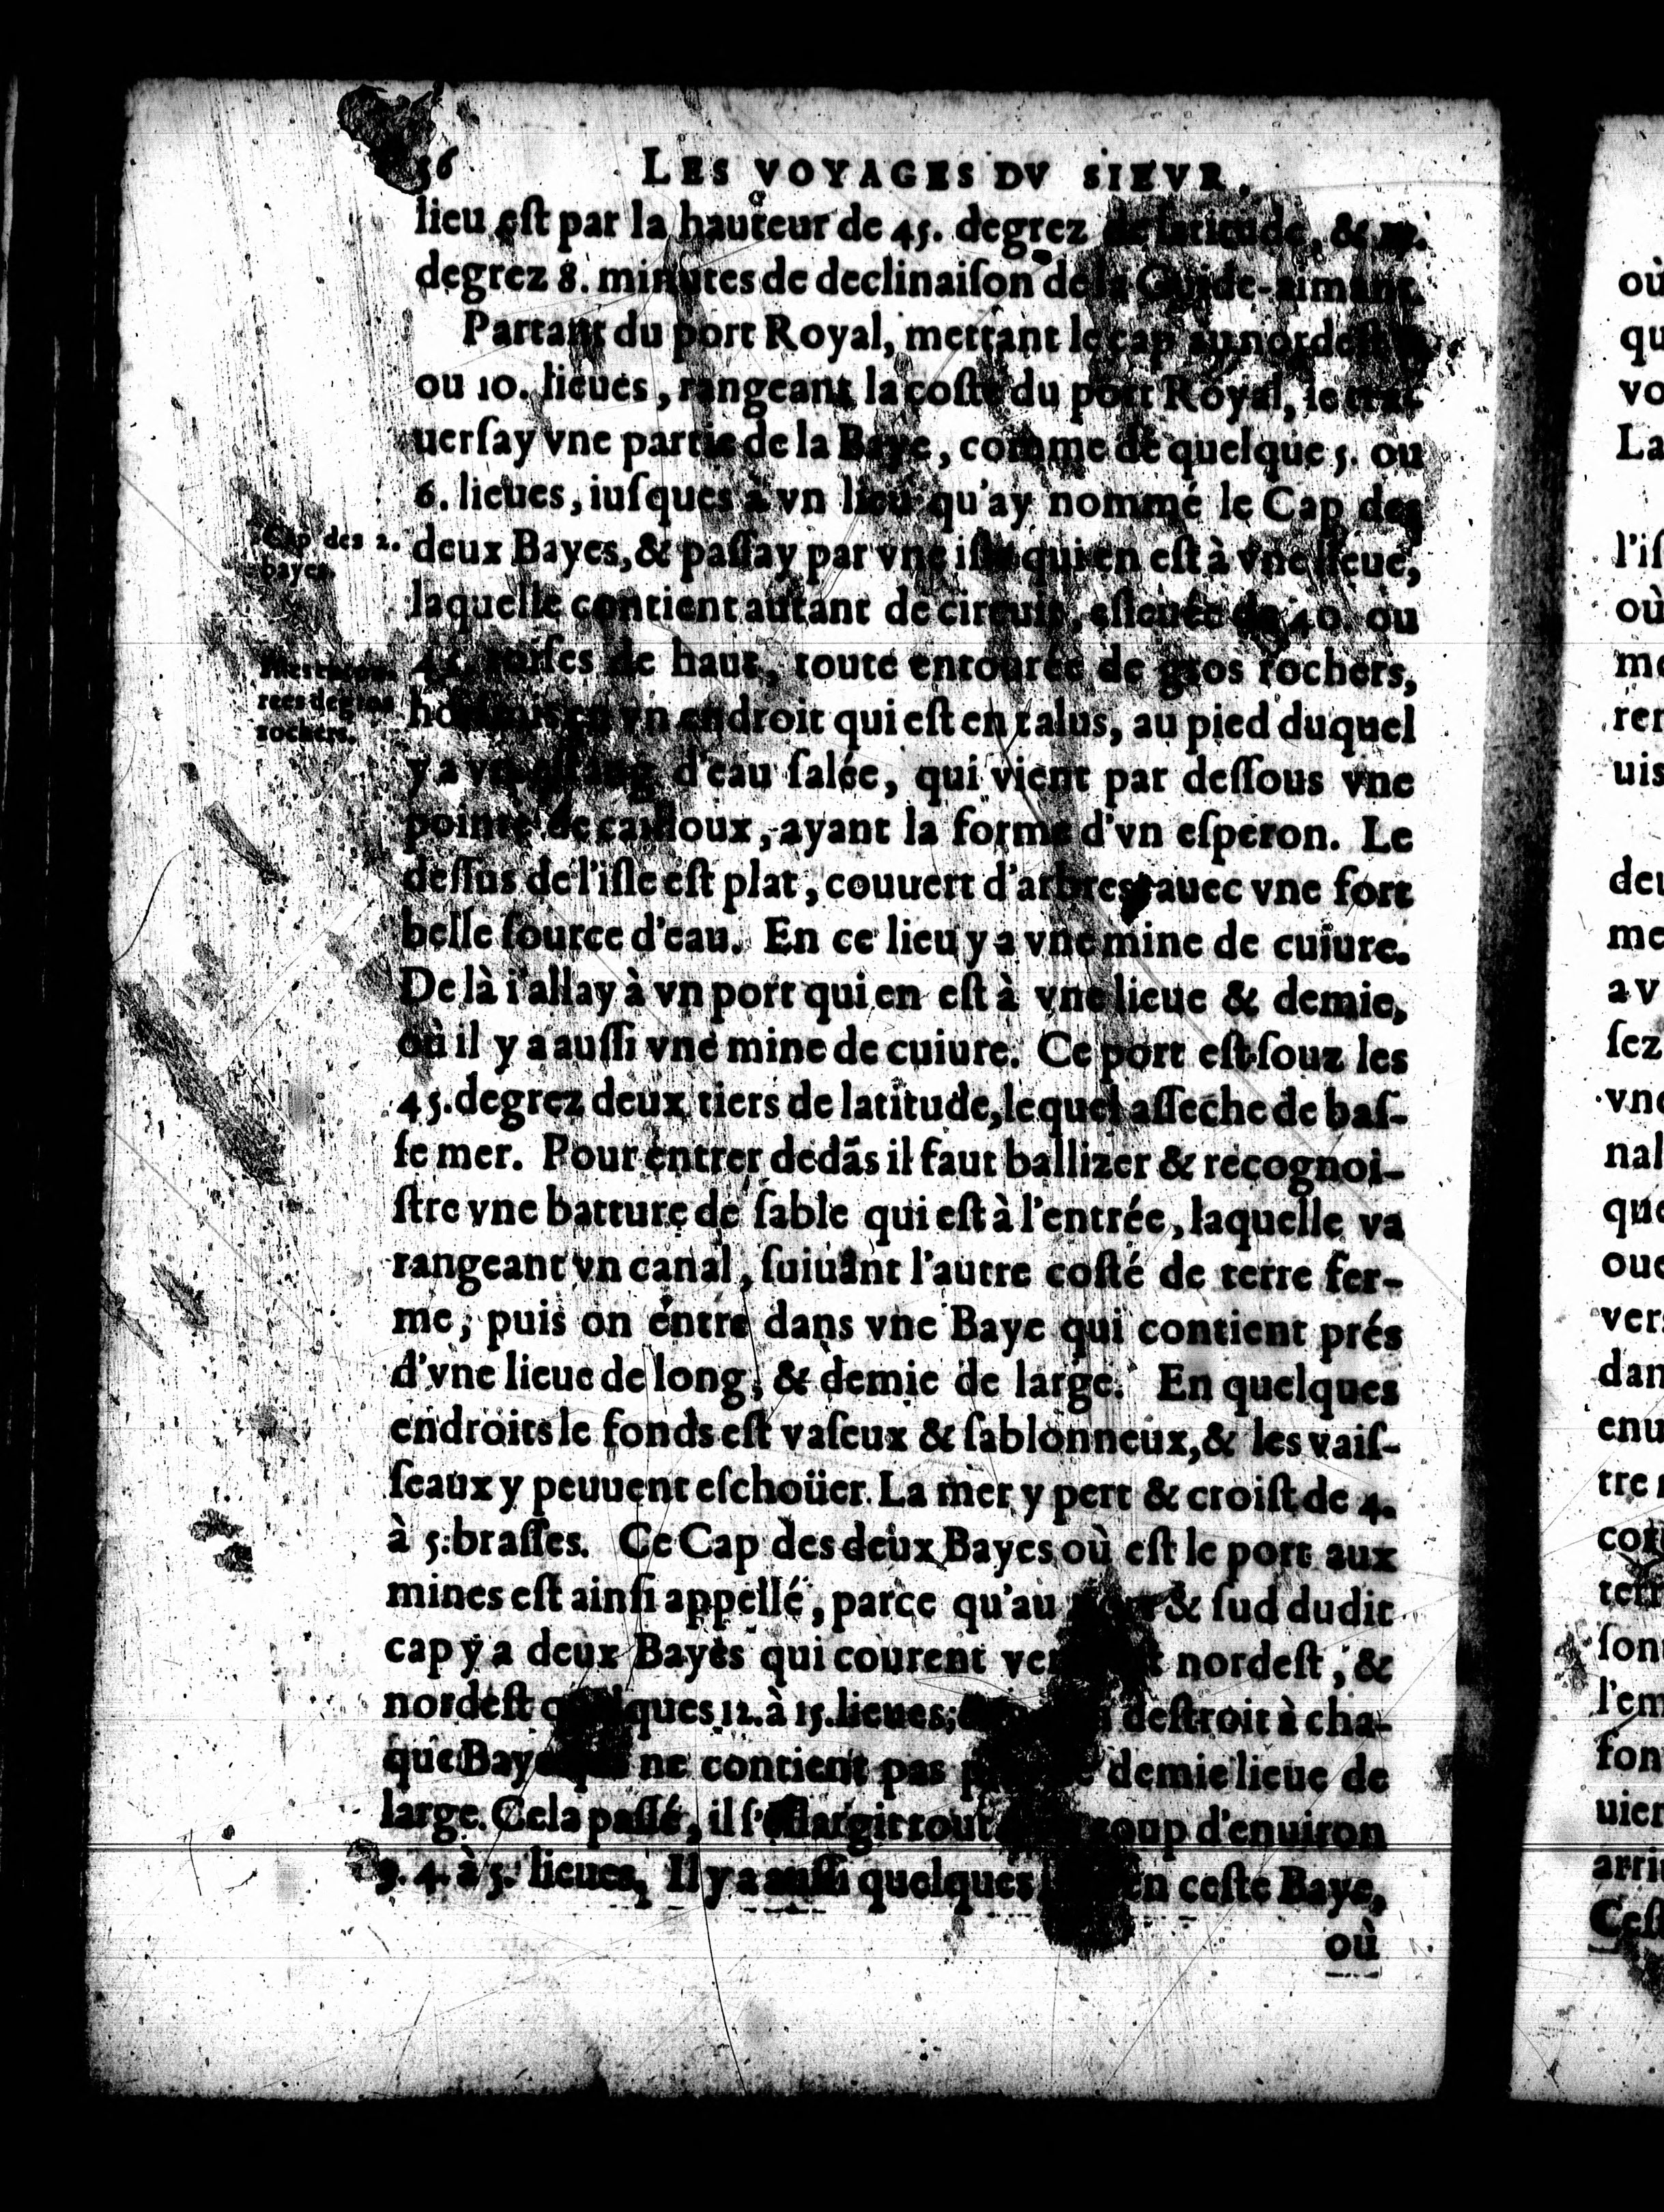 56 LES VOYAGES DV SIEVR
lieu eſt par la hauteur de 45. degrez de latitude, & 17.
degrez 8. minutes de declinaiſon de la Guide-aimant.
Partant du port Royal, mettant le cap au nordeſt
ou 10. lieues, rangeant la coſte du port Royal, ie tra-
uerſay vne partie de la Baye, comme de quelque 5. ou
6. lieues, iuſques à vn lieu qu'ay nommé le Cap des
Cap des 2.
bayes.
deux Bayes, & paſſay par vne iſle qui en eſt à vne lieue,
laquelle contient autant de circuit, eſleuée de 40. ou
45. toiſes de haut, toute entourée de gros rochers,
rees de gros
rochers.
en vn endroit qui eſt en talus, au pied duquel
y a vn eſtang d'eau ſalée, qui vient par deſſous vne
pointe de cailloux, ayant la forme d'vn eſperon. Le
deſſus de l'iſle eſt plat, couuert d'arbres auec vne fort
belle ſource d'eau. En ce lieu y a vne mine de cuiure.
De là i'allay à vn port qui en eſt à vne lieue & demie,
où il y a auſſi vne mine de cuiure. Ce port eſt ſouz les
45. degrez deux tiers de latitude, lequel aſſeche de baſ-
ſe mer. Pour entrer dedãs il faut ballizer & recognoi-
ſtre vne batture de ſable qui eſt à l'entrée, laquelle va
rangeant vn canal, ſuiuãnt l'autre coſté de terre fer-
me, puis on entre dans vne Baye qui contient prés
d'vne lieue de long, & demie de large. En quelques
endroits le fonds eſt vaſeux & ſablonneux, & les vaiſ-
ſeaux y peuuent eſchoüer. La mer y pert & croiſt de 4.
à 5. braſſes. Ce Cap des deux Bayes où eſt le port aux
mines eſt ainſi appellé, parce qu'au & ſud dudit
cap y a deux Bayes qui courent nordeſt, &
nordeſt quelques 12. à 15. lieues; deſtroit à cha-
que Baye qui ne contient pas demie lieue de
large. Cela paſſé, il ſ'eſlargit tout coup d'enuiron
3. 4. à 5. lieues. Il y a auſſi quelques en ceſte Baye,
où
où
qu
vo
La
l'iſ
où
me
rer
uis
deu
me
a v
ſez
vne
nal
que
oue
vers
dan
enu
tre
cot
terr
ſon
l'em
fon
uien
arriu
Ceſ